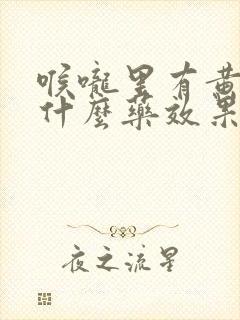 喉嚨里有黄
什麼藥效果
夜之流星